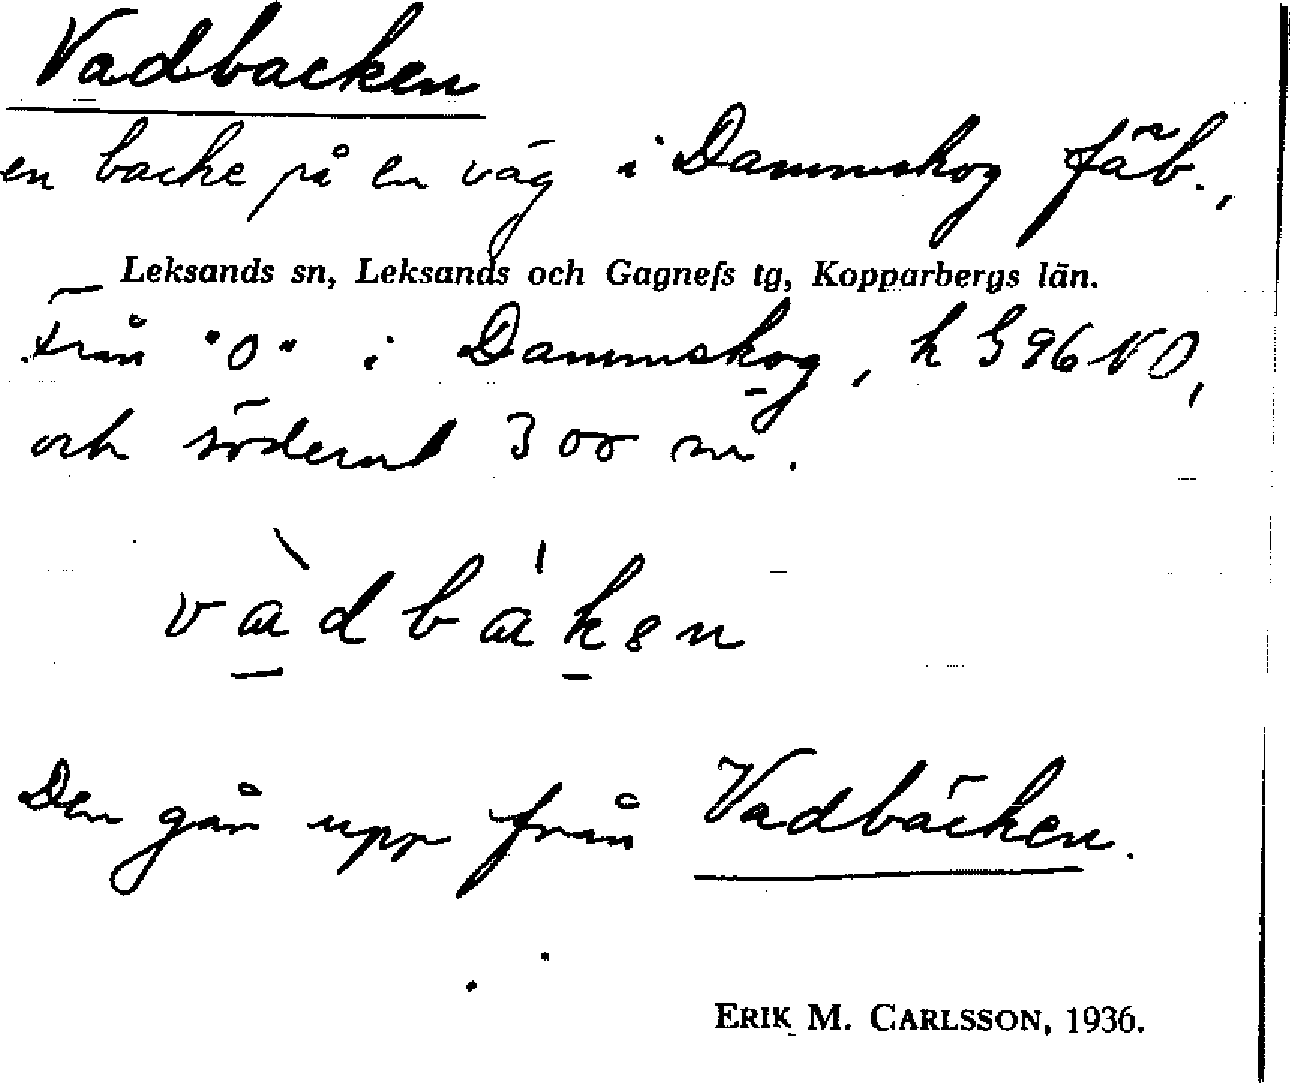 Vadbacken
en backe på en väg i Dammskog fäb.,
Leksands sn, Leksands och Gagnefs tg, Kopparbergs län.
Från "O" i Dammskog, h G 96 NO,
och söderut 300 m.
vàdbákən
Den går upp från Vadbäcken.
ERIK M. CARLSSON, 1936.